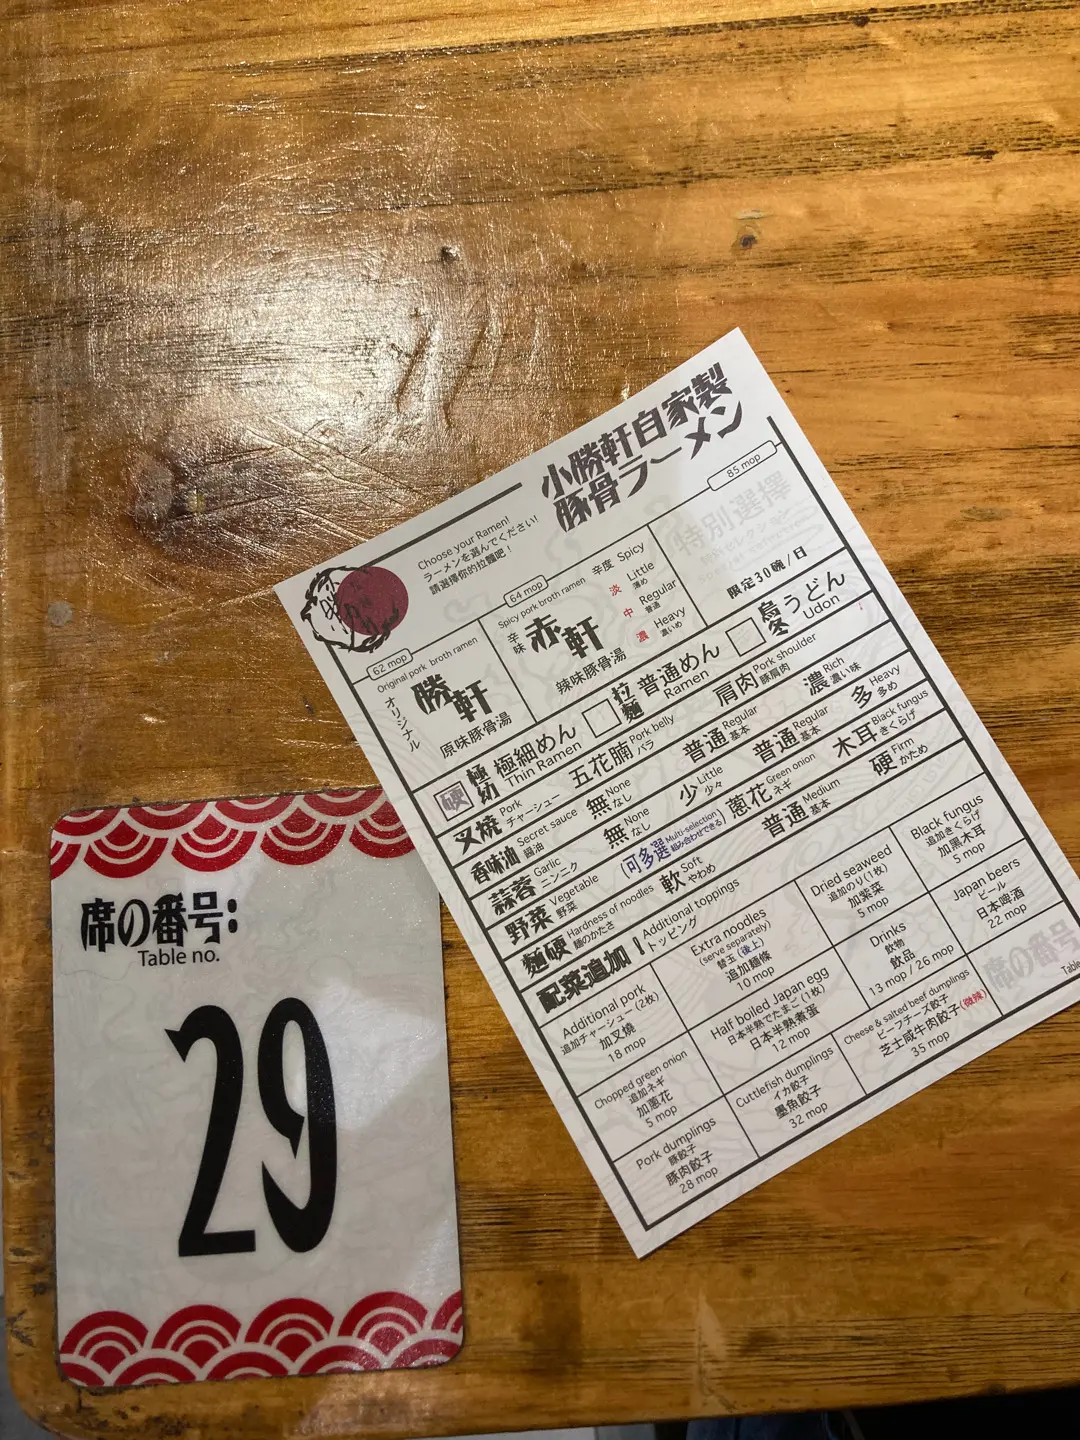 小勝軒自家製
豚骨ラーメン
Choose your Ramen!
ラーメンを選んでください!
請選擇你的拉麵吧!
62 mop
Original pork broth ramen
オリジナル
勝軒
原味豚骨湯
64 mop
Spicy pork broth ramen
辛味
赤軒
辣味豚骨湯
辛度 Spicy
淡 Little 薄め
中 Regular 普通
濃 Heavy 濃いめ
85 mop
特別選擇
限定30碗/日
硬
極幼 極細めん Thin Ramen
拉麵 普通めん Ramen
烏冬 うどん Udon
叉燒 Pork チャーシュー 五花腩 Pork belly バラ 肩肉 Pork shoulder 豚肩肉
香味油 Secret sauce 醤油 無 None なし 普通 Regular 基本 濃 Rich 濃い味
蒜蓉 Garlic ニンニク 無 None なし 少 Little 少々 普通 Regular 基本 多 Heavy 多め
野菜 Vegetable 野菜 (可多選 Multi-selection 組み合わせできる) 蔥花 Green onion ネギ 木耳 Black fungus きくらげ
麵硬 Hardness of noodles 麺のかたさ 軟 Soft やわめ 普通 Medium 基本 硬 Firm かため
配菜追加! Additional toppings トッピング
Additional pork
追加チャーシュー(2枚)
加叉燒
18 mop
Extra noodles
(serve separately)
替玉(後上)
追加麵條
10 mop
Dried seaweed
追加のり(1枚)
加紫菜
5 mop
Black fungus
追加きくらげ
加黑木耳
5 mop
Chopped green onion
追加ネギ
加蔥花
5 mop
Half boiled Japan egg
日本半熟でたまご(1枚)
日本半熟煮蛋
12 mop
Drinks
飲物
飲品
13 mop / 26 mop
Japan beers
ビール
日本啤酒
22 mop
Pork dumplings
豚餃子
豚肉餃子
28 mop
Cuttlefish dumplings
イカ餃子
墨魚餃子
32 mop
Cheese & salted beef dumplings
ビーフチーズ餃子
芝士咸牛肉餃子(微辣)
35 mop
席の番号
Table
席の番号:
Table no.
29